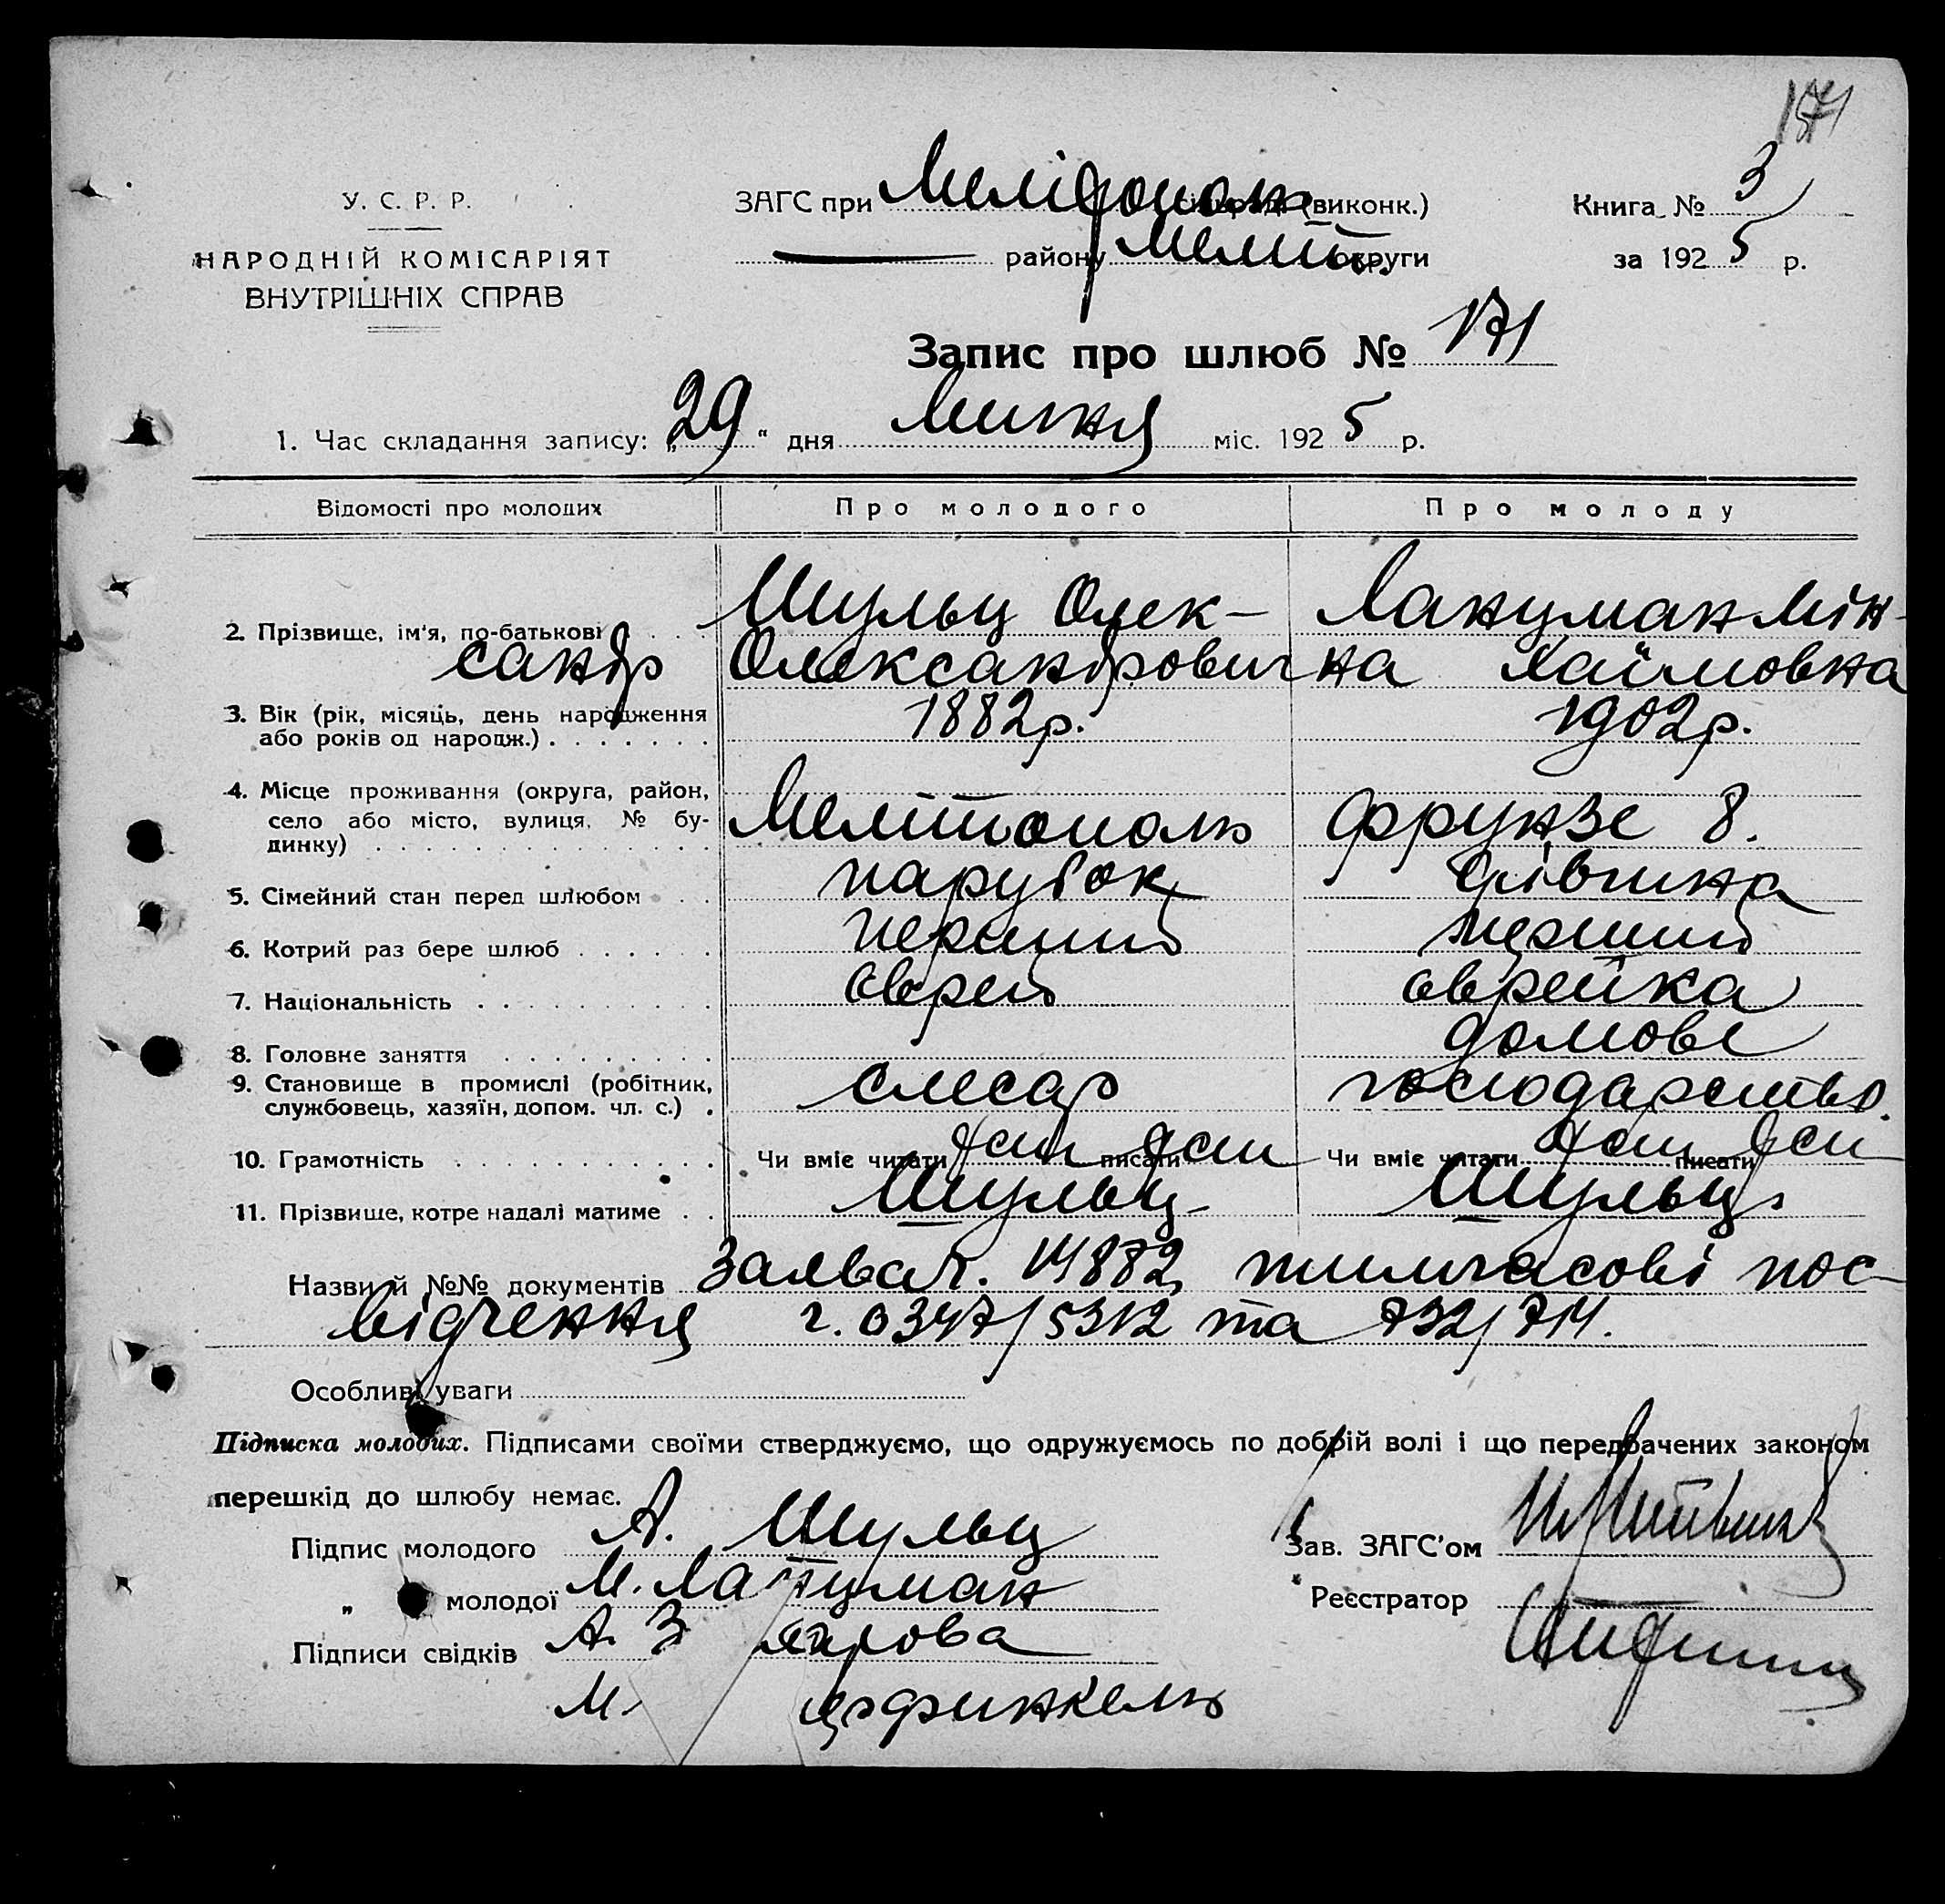 171
У. С. Р. Р.
НАРОДНІЙ КОМІСАРІЯТ
ВНУТРІШНІХ СПРАВ
ЗАГС при Мелітополь (виконк.)
району Меліт. округи
Книга № 3
за 1925 р.
Запис про шлюб № 171
1. Час складання запису: „29" дня Липня міс. 1925 р.
Відомості про молодих Про молодого Про молоду
2. Прізвище, ім'я, по-батькові Шульц Олек- Ланцман Мін-
сандр Олександрович на Хаїмовна
3. Вік (рік, місяць, день народження
або років од народж.) 1882р. 1902р.
4. Місце проживання (округа, район,
село або місто, вулиця, № бу-
динку) Мелітополь Фрунзе 8.
5. Сімейний стан перед шлюбом парубок дівчина
6. Котрий раз бере шлюб перший перший
7. Національність єврей єврейка
8. Головне заняття домове
9. Становище в промислі (робітник,
службовець, хазяїн, допом. чл. с.) слесар господарство.
10. Грамотність Чи вміє читати писати Чи вміє читати писати
11. Прізвище, котре надалі матиме Шульц Шульц
Назви й №№ документів Заява ч. 14872, тимчасові пос-
відчення ч. 0347/5312 та 732/714.
Особливі уваги
Підписка молодих. Підписами своїми стверджуємо, що одружуємось по добрій волі і що передбачених законом
перешкід до шлюбу немає.
Підпис молодого А. Шульц
„ молодої М. Ланцман
Підписи свідків А. З
М.
Зав. ЗАГС'ом
Реєстратор